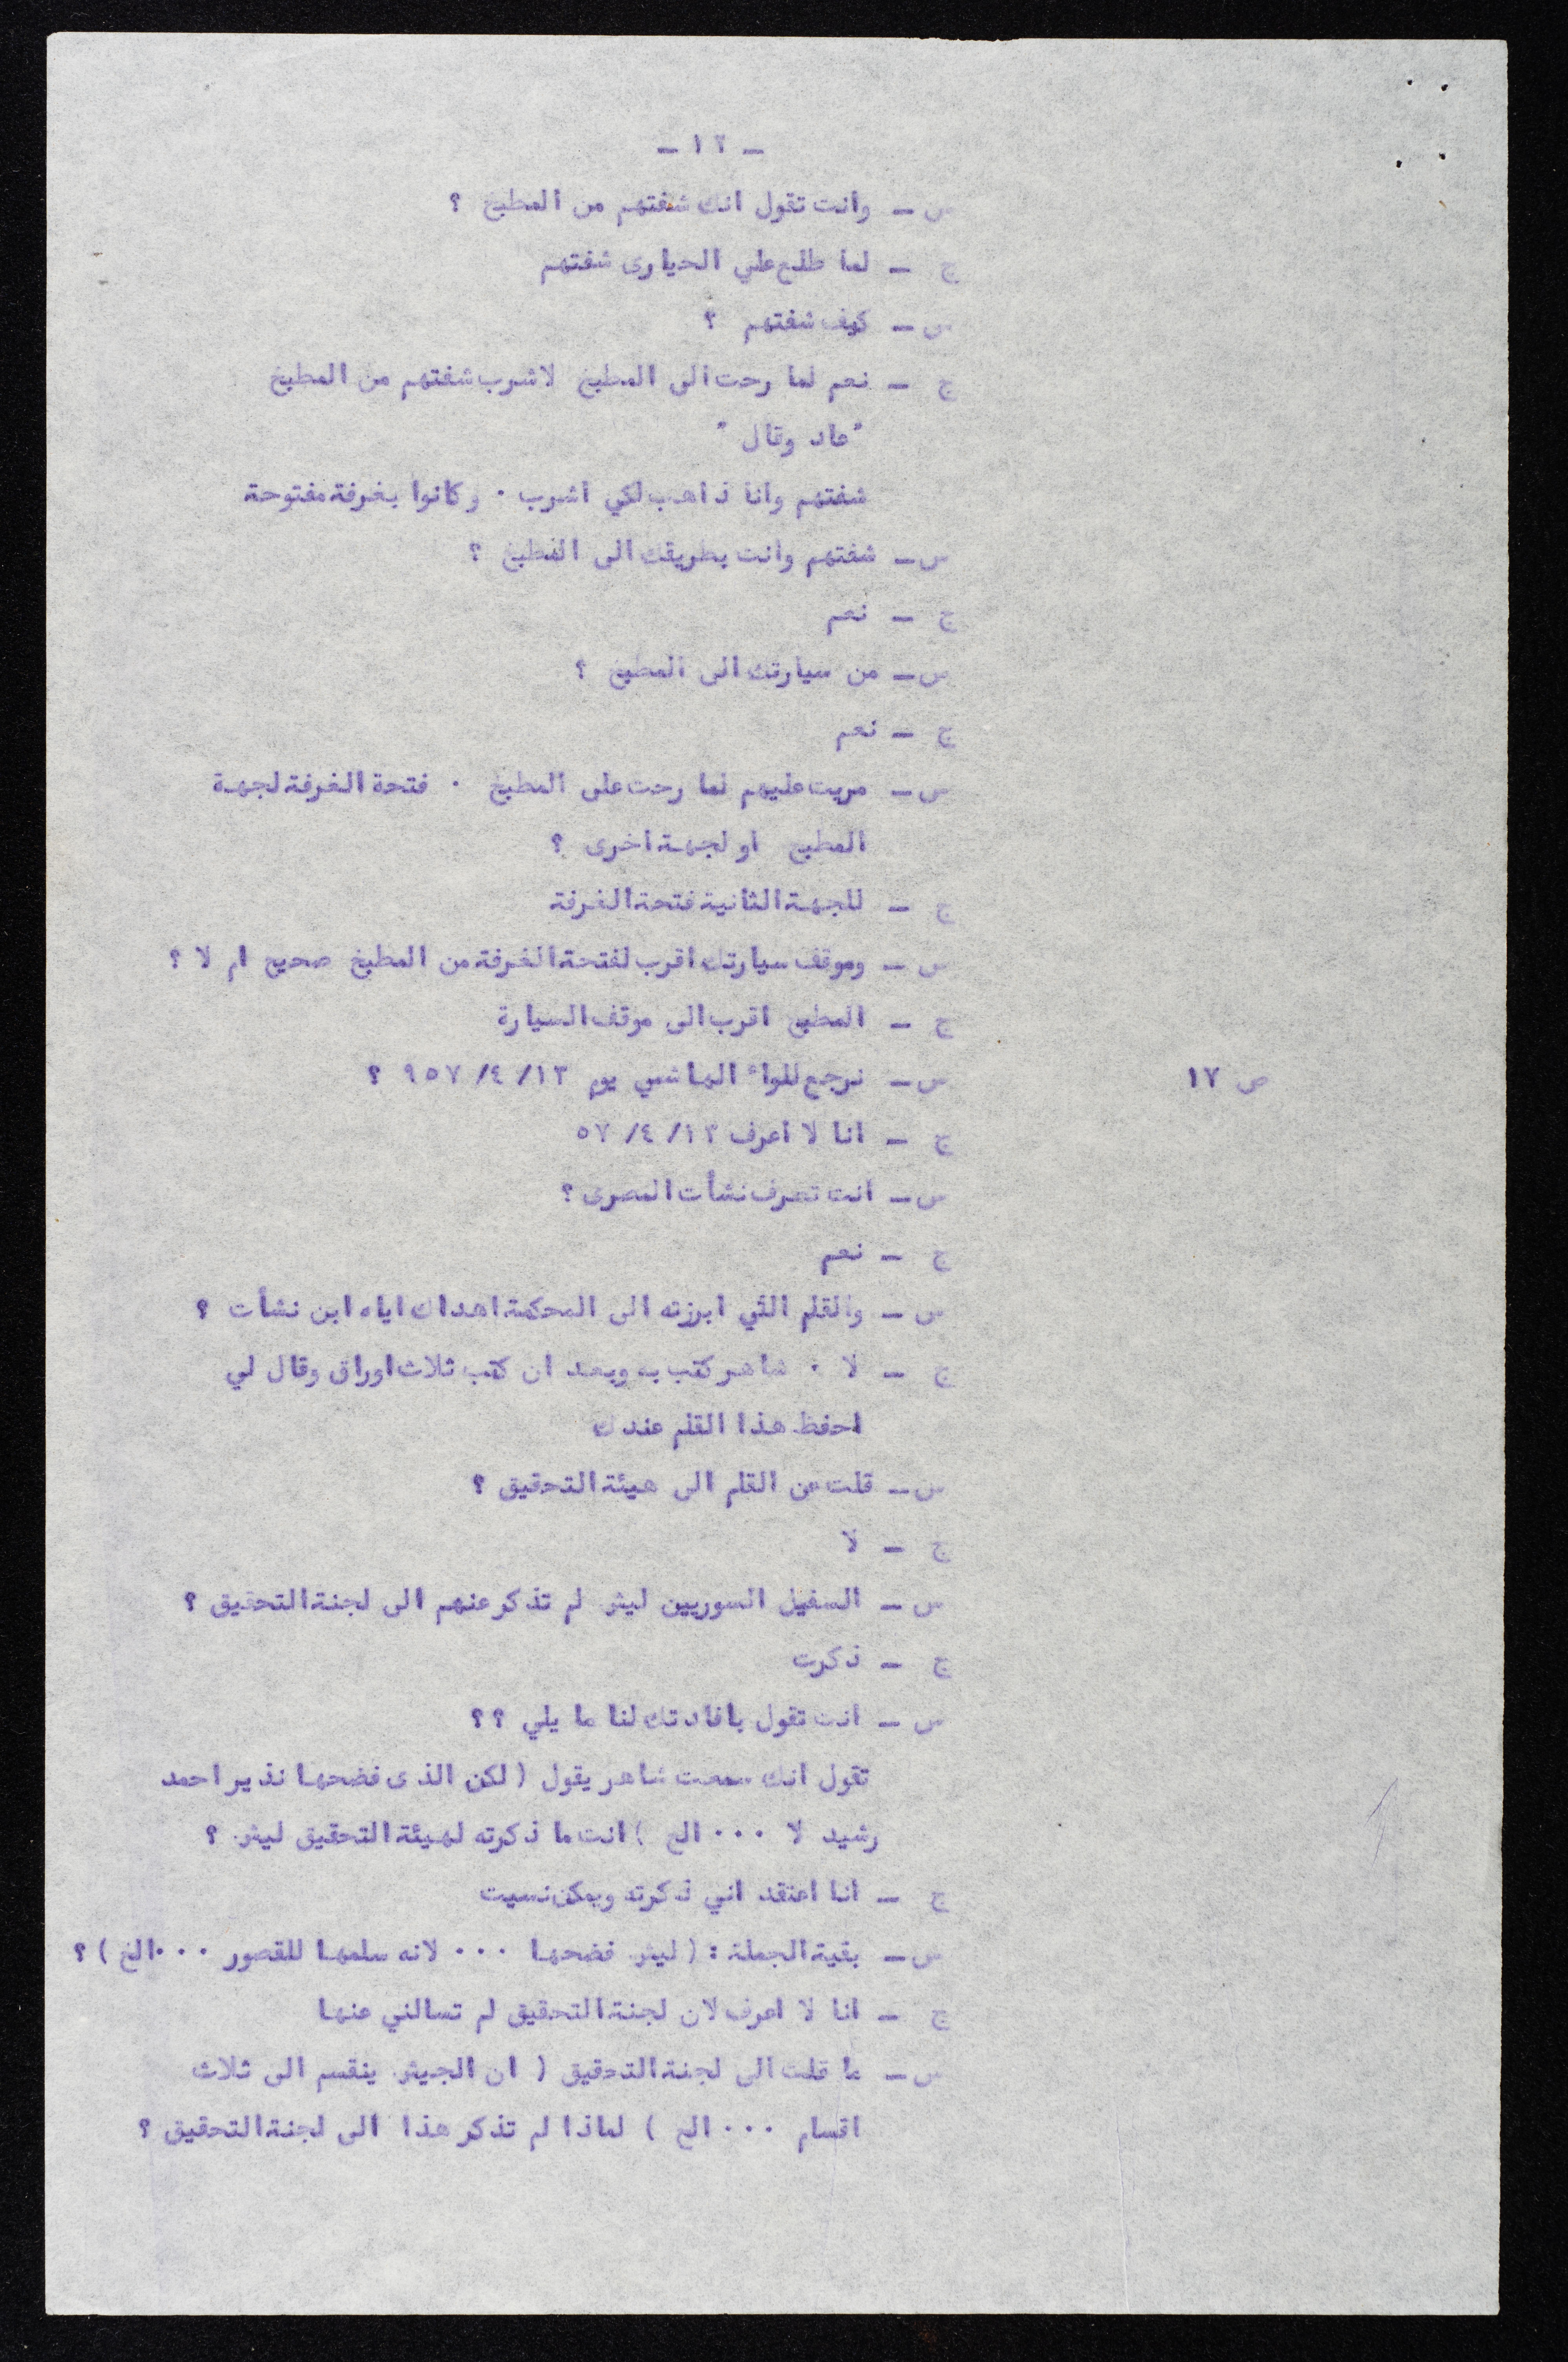 - ١٢ -
س - وانت تقول انك شفتهم من المطبخ ؟
ج - لما طلع علي الحيارى شفتهم
س - كيف شفتهم ؟
ج - نعم لما رحت الى المطبخ لاشرب شفتهم من المطبخ
" عاد وقال "
شفتهم وانا ذاهب لكي اشرب . وكانوا بغرفة مفتوحة
س - شفتهم وانت بطريقك الى المطبخ ؟
ج - نعم
س - من سيارتك الى المطبخ ؟
ج - نعم
س - مريت عليهم لما رحت على المطبخ . فتحة الغرفة لجهة
المطبخ او لجهة اخرى ؟
ج - للجهة الثانية فتحة الغرفة
س - وموقف سيارتك اقرب لفتحة الغرفة من المطبخ صحيح ام لا ؟
ج - المطبخ اقرب الى موقف السيارة
ص ١٧ س - نرجع للواء الهاشمي يوم ١٣/ ٤/ ٩٥٧ ؟
ج - انا لا اعرف ١٣/ ٤/ ٥٧
س - انت تعرف نشأت المصرى ؟
ج - نعم
س - والقلم اللي ابرزته الى المحكمة اهداك اياه ابن نشأت ؟
ج - لا . شاهر كتب به وبعد ان كتب ثلاث اوراق وقال لي
احفظ هذا القلم عندك
س - قلت عن القلم الى هيئة التحقيق ؟
ج - لا
س - السفيل السوريين ليش لم تذكر عنهم الى لجنة التحقيق ؟
ج - ذكرت
س - انت تقول بافادتك لنا ما يلي ؟ ؟
تقول انك سمعت شاهر يقول ( لكن الذى فضحها نذير احمد
رشيد لا ... الخ ) انت ما ذكرته لهيئة التحقيق ليش ؟
ج - انا اعتقد اني ذكرته ويمكن نسيت
س - بقية الجملة : ( ليش فضحها ... لانه سلمها للقصور ... الخ ) ؟
ج - انا لا اعرف لان لجنة التحقيق لم تسالني عنها
س - ما قلت الى لجنة التحقيق ( ان الجيش ينقسم الى ثلاث
اقسام ... الخ ) لماذا لم تذكر هذا الى لجنة التحقيق ؟